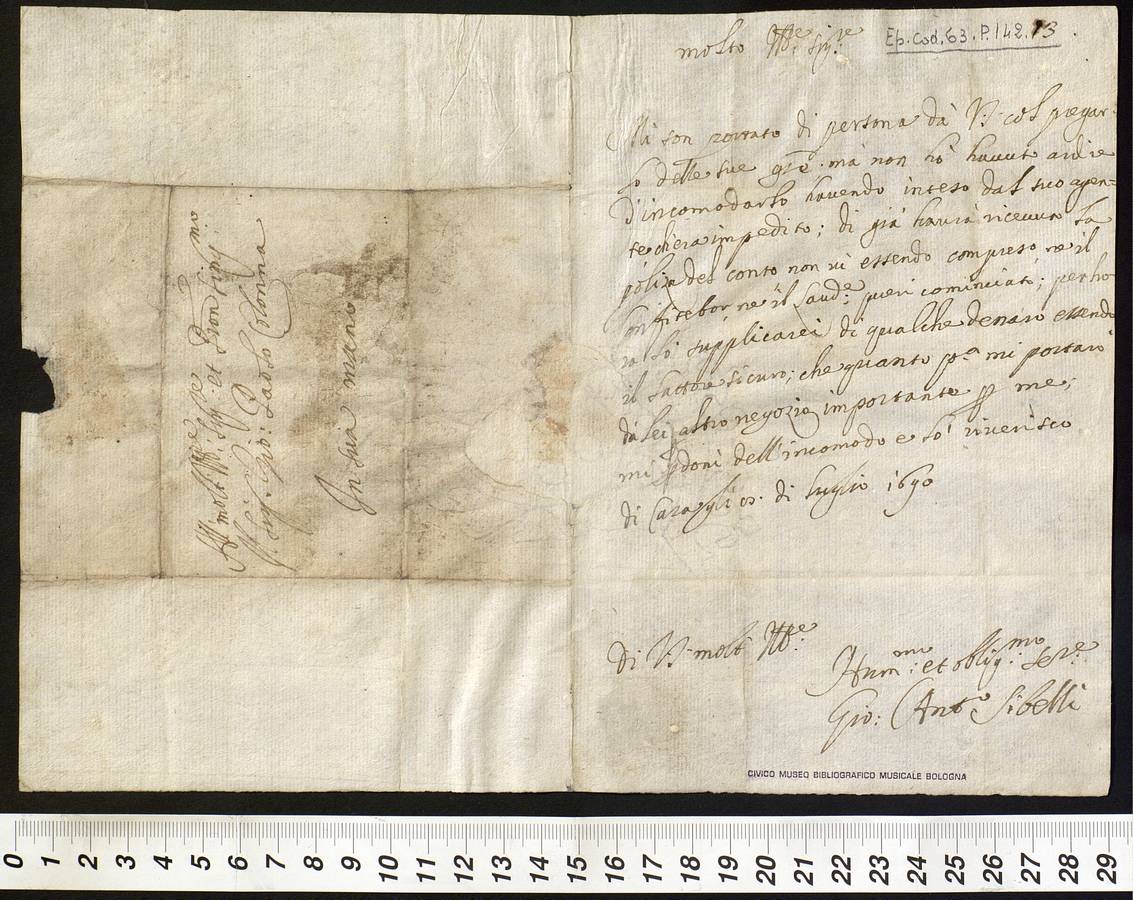 molto Ill.re Sig.re
Ep. Cod. 63. P. 142. 13
Mi son portato di persona dà V.S. col pregar-
lo delle sue grẽ, mà non hò havuto ardire
d'incomodarlo havendo inteso dal suo agen=
te ch'era impedito; di già havrà ricevuta la
poliza del conto non vi essendo compreso ne il
Confitebor, ne il Laud.e pueri cominciati; per ho
ra lo supplicarei di qualche denaro essendo
il lattore sicuro; che quanto p.a mi portarò
dà lei altro negozio importante p me;
mi pdoni dell'incomodo e lo riverisco
di Luglio 1690
Di V.S. molt Ill.e
Hum.mo et oblig.mo Ser.e
Gio: Ant.o Sibelli
CIVICO MUSEO BIBLIOGRAFICO MUSICALE BOLOGNA
Al molt Ill.re Sig.re et Pron Sing.mo
Il Sig.r Gio: Paolo Colonna
In sua mano
0 1 2 3 4 5 6 7 8 9 10 11 12 13 14 15 16 17 18 19 20 21 22 23 24 25 26 27 28 29